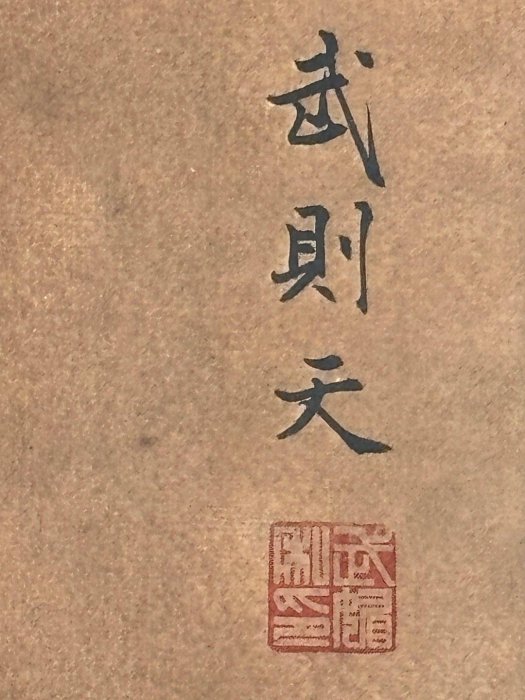 武則天